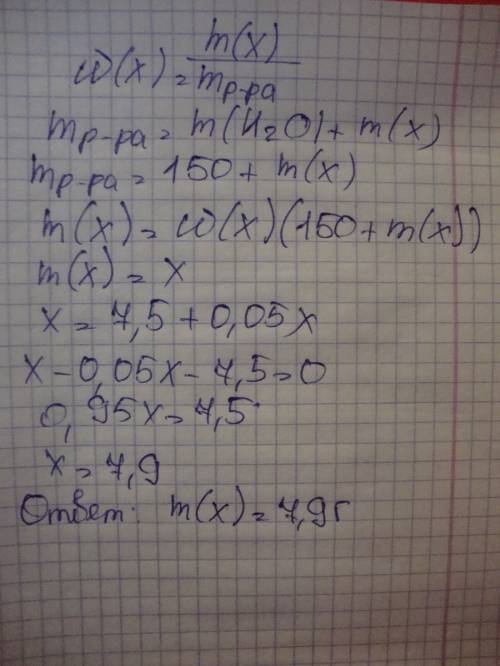 ω(x) = m(x) / mр-ра
mр-ра = m(H₂O) + m(x)
mр-ра = 150 + m(x)
m(x) = ω(x)(150 + m(x))
m(x) = x
x = 7,5 + 0,05x
x - 0,05x - 7,5 = 0
0,95x = 7,5
x = 7,9
Ответ: m(x) = 7,9г